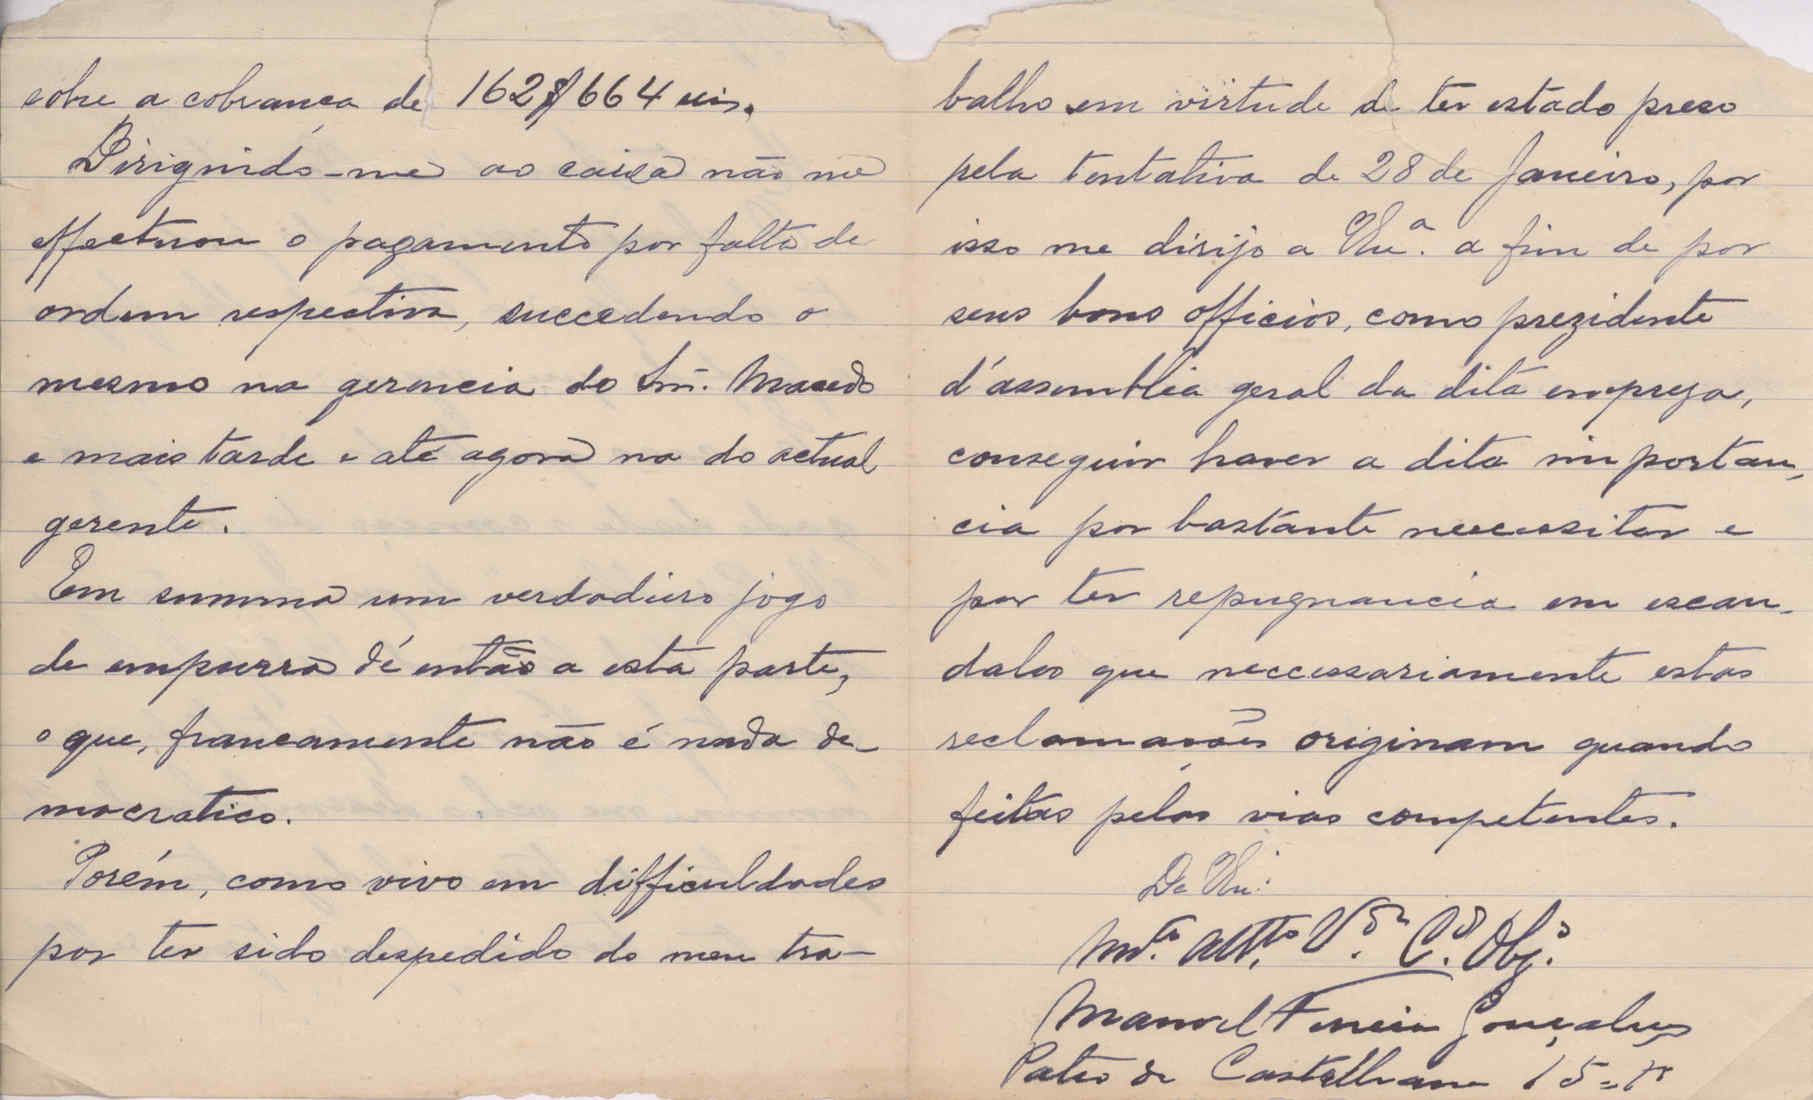 sobre a cobrança de 162$664 reis.
Dirigindo-me ao caixa não me
effectuou o pagamento por falta de
ordem respectiva, succedendo o
mesmo na gerencia do Snr. Macedo
e mais tarde e até agora na do actual
gerente.
Em summa um verdadeiro jogo
de empurra d'é então a esta parte,
o que, francamente não é nada de-
mocratico.
Porém, como vivo em difficuldades
por ter sido despedido do meu tra-
balho em virtude de ter estado preso
pela tentativa de 28 de Janeiro, por
isso me dirijo a V. Exª. a fim de por
seus bons officios, como prezidente
d'assemblia geral da dita empreza,
conseguir haver a dita importan-
cia por bastante neccessitar e
por ter repugnancia em escan-
dalos que neccessariamente estas
reclamações originam quando
feitas pelas vias competentes.
De V. Ex.
Mto. Atto. Vor. Cdo. Obgo.
Manoel Ferreira Gonçalves
Pateo de Castelhano 15-1º